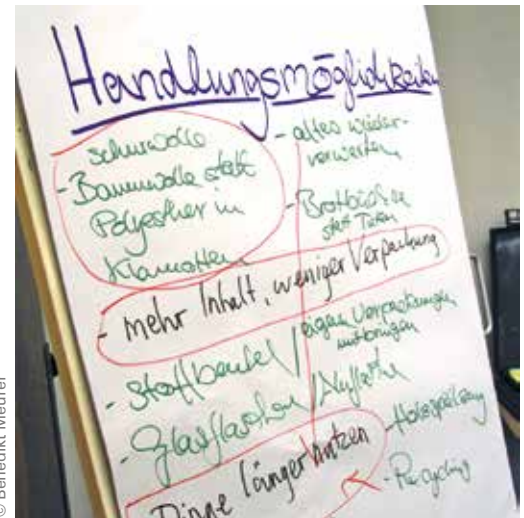 Handlungsmöglichkeiten
Schurwolle
- Baumwolle statt
Polyesther in
Klamotten
- altes wieder-
verwerten
- Brotbüchse
statt Tüten
- mehr Inhalt, weniger Verpackung
- Stoffbeutel / eigene Verpackungen
mitbringen
- Glasflaschen /
- Dinge länger nutzen
- Holzspielzeug
- Recycling
© Benedikt Meurer